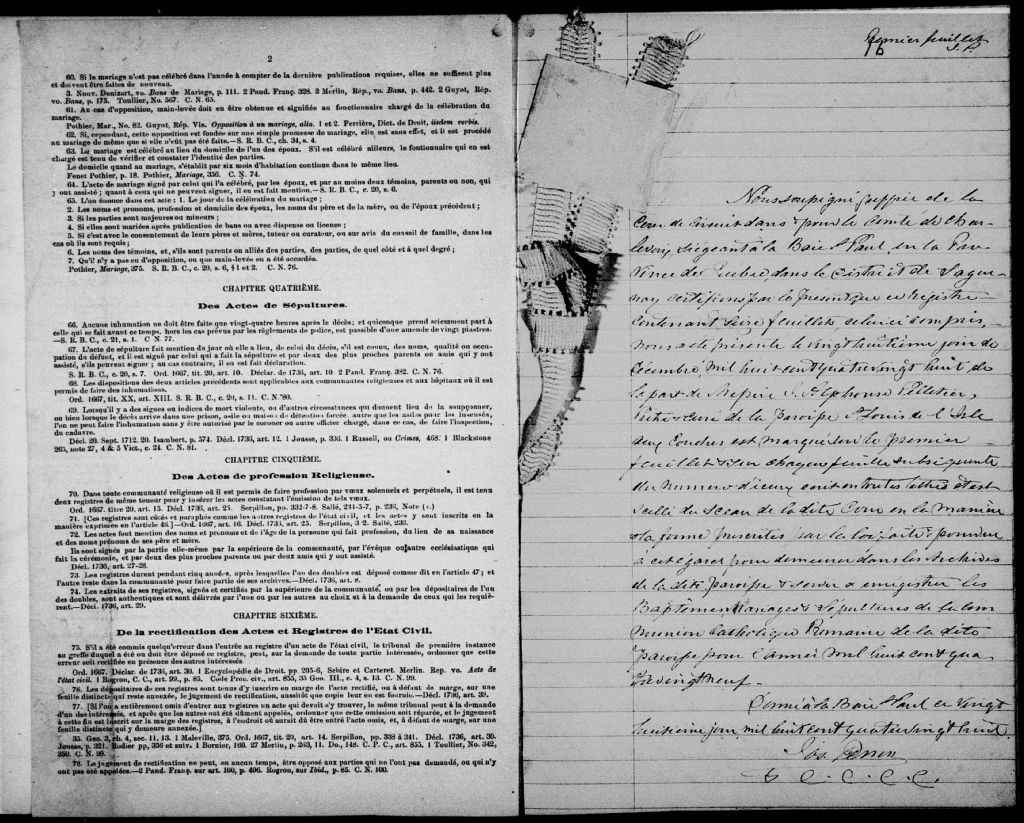 2
60. Si le mariage n'est pas célébré dans l'année à compter de la dernière publications requises, elles ne suffisent plus
et doivent être faites de nouveau.
3. Nouv. Denizart, vo. Bans de Mariage, p. 111. 2 Pand. Franç. 328. 2 Merlin, Rép., vo. Bans, p. 442. 2 Guyot, Rép.
vo. Bans, p. 175. Toullier, No. 567. C. N. 65.
61. Au cas d'opposition, main-levée doit en être obtenue et signifiée au fonctionnaire chargé de la célébration du
mariage.
Pothier, Mar., No. 82. Guyot, Rép. Vis. Opposition à un mariage, alin. 1 et 2. Ferrière, Dict. de Droit, iisdem verbis.
62. Si, cependant, cette opposition est fondée sur une simple promesse de mariage, elle est sans effet, et il est procédé
au mariage de même que si elle n'eût pas été faite.—S. R. B. C., ch. 34, s. 4.
63. Le mariage est célébré au lieu du domicile de l'un des époux. S'il est célébré ailleurs, le fontionnaire qui en est
chargé est tenu de vérifier et constater l'identité des parties.
Le domicile quant au mariage, s'établit par six mois d'habitation continue dans le même lieu.
Fenet Pothier, p. 18. Pothier, Mariage, 356. C. N. 74.
64. L'acte de mariage signé par celui qui l'a célébré, par les époux, et par au moins deux témoins, parents ou non, qui
y ont assisté ; quant à ceux qui ne peuvent signer, il en est fait mention.—S. R. B. C., c. 20, s. 6.
65. L'on énonce dans cet acte : 1. Le jour de la célébration du mariage ;
2. Les noms et pronoms, profession et domicile des époux, les noms du père et de la mère, ou de l'époux précédent ;
3. Si les parties sont majeures ou mineures ;
4. Si elles sont mariées après publication de bans ou avec dispense ou licence ;
5. Si c'est avec le consentement de leurs pères et mères, tuteur ou curateur, ou sur avis du conseil de famille, dans les
cas où ils sont requis ;
6. Les noms des témoins, et, s'ils sont parents ou alliés des parties, des parties, de quel côté et à quel degré ;
7. Qu'il n'y a pas eu d'opposition, ou que main-levée en a été accordée.
Pothier, Mariage, 375. S. R. B. C., c. 20, s. 6, § 1 et 2. C. N. 76.
CHAPITRE QUATRIÈME.
Des Actes de Sépultures.
66. Aucune inhumation ne doit être faite que vingt-quatre heures après le décès ; et quiconque prend sciemment part à
celle qui se fait avant ce temps, hors les cas prévus par les règlements de police, est passible d'une amende de vingt piastres.
—S. R. B. C., c. 21, s. 1. C N. 77.
67. L'acte de sépulture fait mention du jour où elle a lieu, de celui du décès, s'il est connu, des noms, qualité ou occu-
pation du défunt, et il est signé par celui qui a fait la sépulture et par deux des plus proches parents ou amis qui y ont
assisté, s'ils peuvent signer ; au cas contraire, il en est fait déclaration.
S. R. B. C., c. 20, s. 7. Ord. 1667, tit. 20, art. 10. Déclar. de 1736, art. 10 2 Pand. Franç. 382. C. N. 76.
68. Les dispositions des deux articles précédents sont applicables aux communautés religieuses et aux hôpitaux où il est
permis de faire des inhumations.
Ord. 1667, tit. XX, art. XIII. S. R. B. C., c. 20, s. 11. C. N. 80.
69. Lorsqu'il y a des signes ou indices de mort violente, ou d'autres circonstances qui donnent lieu de la soupçonner,
ou bien lorsque le décès arrive dans une prison, asile ou maison de détention forcée, autre que les asiles pour les insensés,
l'on ne peut faire l'inhumation sans y être autorisé par le coroner ou autre officier chargé, dans ce cas, de faire l'inspection,
du cadavre.
Décl. 20. Sept. 1712. 20. Isambert, p. 574. Décl. 1736, art. 12. 1 Jousse, p. 335. 1 Russell, ou Crimes, 468. 1 Blackstone
265, note 27, 4 & 5 Vict., c. 24. C. N. 81.
CHAPITRE CINQUIÈME.
Des Actes de profession Religieuse.
70. Dans toute communauté religieuse où il est permis de faire profession par vœux solennels et perpétuels, il est tenu
deux registres de même teneur pour y insérer les actes constatant l'émission de tels vœux.
Ord. 1667. titre 20, art. 15. Décl. 1736, art. 25. Serpillon, pp. 332-7-8. Sallé, 231-5-7, p. 236, Note
71. [Ces registres sont cotés et paraphés comme les autres registres de l'état civil, et les actes y sont inscrits en la
manière exprimée en l'article 46.]—Ord. 1667, art. 16. Décl. 1736, art. 25. Serpillon, 332. Sallé, 236.
72. Les actes font mention des noms et prénoms et de l'âge de la personne qui fait profession, du lieu de sa naissance
et des noms prénoms de ses père et mère.
Ils sont signés par la partie elle-même par la supérieure de la communauté, par l'évêque ou autre ecclésiastique qui
fait la cérémonie, et par deux des plus proches parents ou par deux amis qui y ont assisté.
Décl. 1736, art. 27-28.
73. Les registres durent pendant cinq années, après lesquelles l'un des doubles est déposé comme dit en l'article 47 ; et
l'autre reste dans la communauté pour faire partie de ses archives.—Décl. 1736, art. 8.
74. Les extraits de ses registres, signés et certifiés par la supérieure de la communauté, ou par les dépositaires de l'un
des doubles, sont authentiques et sont délivrés par l'une ou par les autres au choix et à la demande de ceux qui les requiè-
rent.—Décl. 1736, art. 29.
CHAPITRE SIXIÈME.
De la rectification des Actes et Registres de l'Etat Civil.
75. S'il a été commis quelqu'erreur dans l'entrée au registre d'un acte de l'état civil, le tribunal de première instance
au greffe duquel a été ou doit être déposé ce registre, peut, sur la demande de toute partie intéressée, ordonner que cette
erreur soit rectifiée en présence des autres intéressés.
Ord. 1667. Déclar. de 1736, art. 30. 1 Encyclopédie de Droit, pp. 205-6, Sebire et Carteret. Merlin. Rep. vo. Acte de
l'état civil. 1 Rogron, C. C., art. 99., p. 85. Code Proc. civ., art. 855, 35 Geo. III., c. 4, s. 13. C. N. 99.
76. Les dépositaires de ces registres sont tenus d'y inscrire en marge de l'acte rectifié, ou à défaut de marge, sur une
feuille distincte qui reste annexée, le jugement de rectification, aussitôt que copie leur en est fournie.—Décl. 1736, art. 39.
77. [Si l'on a entièrement omis d'entrer aux registres un acte qui devait s'y trouver, le même tribunal peut à la demande
d'un des intéressés, et après que les autres ont été dûment appelés, ordonner que cette omission soit réparée, et le jugement
à cette fin est inscrit sur la marge des registres, à l'endroit où aurait dû être entré l'acte omis, et, à défaut de marge, sur une
feuille distincte qui y demeure annexée.]
35. Geo. 3, ch. 4, sec. 11, 13. 1 Maleville, 375. Ord. 1667, tit. 20, art. 14. Serpillon, pp. 338 à 341. Décl. 1736, art. 30.
Jousse, p. 321. Rodier pp, 356 et suiv. 1 Bornier, 160. 27 Merlin, p. 263, 11. Do., 148. C. P. C., art. 855. 1 Toullier, No. 342,
350. C. N. 99.
78. Le jugement de rectification ne peut, en aucun temps, être opposé aux parties qui ne l'ont pas demandé, ou qui n'y
ont pas été appelées.—2 Pand. Franç. sur art. 100, p. 406. Rogron, sur Ibid., p. 85. C N. 100.
Premier feuillet
J. P.
Nous soussigné greffier de la
Cour de Circuit dans & pour le Comté de Char
levoix, siégeant à la Baie St Paul en la Pro-
vince de Québec, dans le District de Sague-
nay certifions par la présent que ce registre
contenant seize feuillets celui-ci compris,
nous a été présenté le vingt huitième jour de
Décembre, mil huit cent quatre vingt huit de
la part de Messire J. Alphonse Pelletier,
Prêtre curé de la Paroisse St Louis de l'Isle
aux Coudres est marqué sur le premier
feuillet & sur chaque feuille subséquente
du numéro d'iceux écrit en toutes lettres & est
scellé du sceau de la dite Cour en la manière
& la forme prescrites par la loi à cet égard pour demeurer dans les Archives
de la dite paroisse & servir a enregistrer les
Baptêmes Mariages & Sépultures de la Com
munion Catholique Romaine de la dite
paroisse pour l'année mil huit cent qua
tre vingt neuf.
Donné à la Baie St Paul ce vingt
huitième jour mil huit cent quatre vingt huit
C. C. C. C.